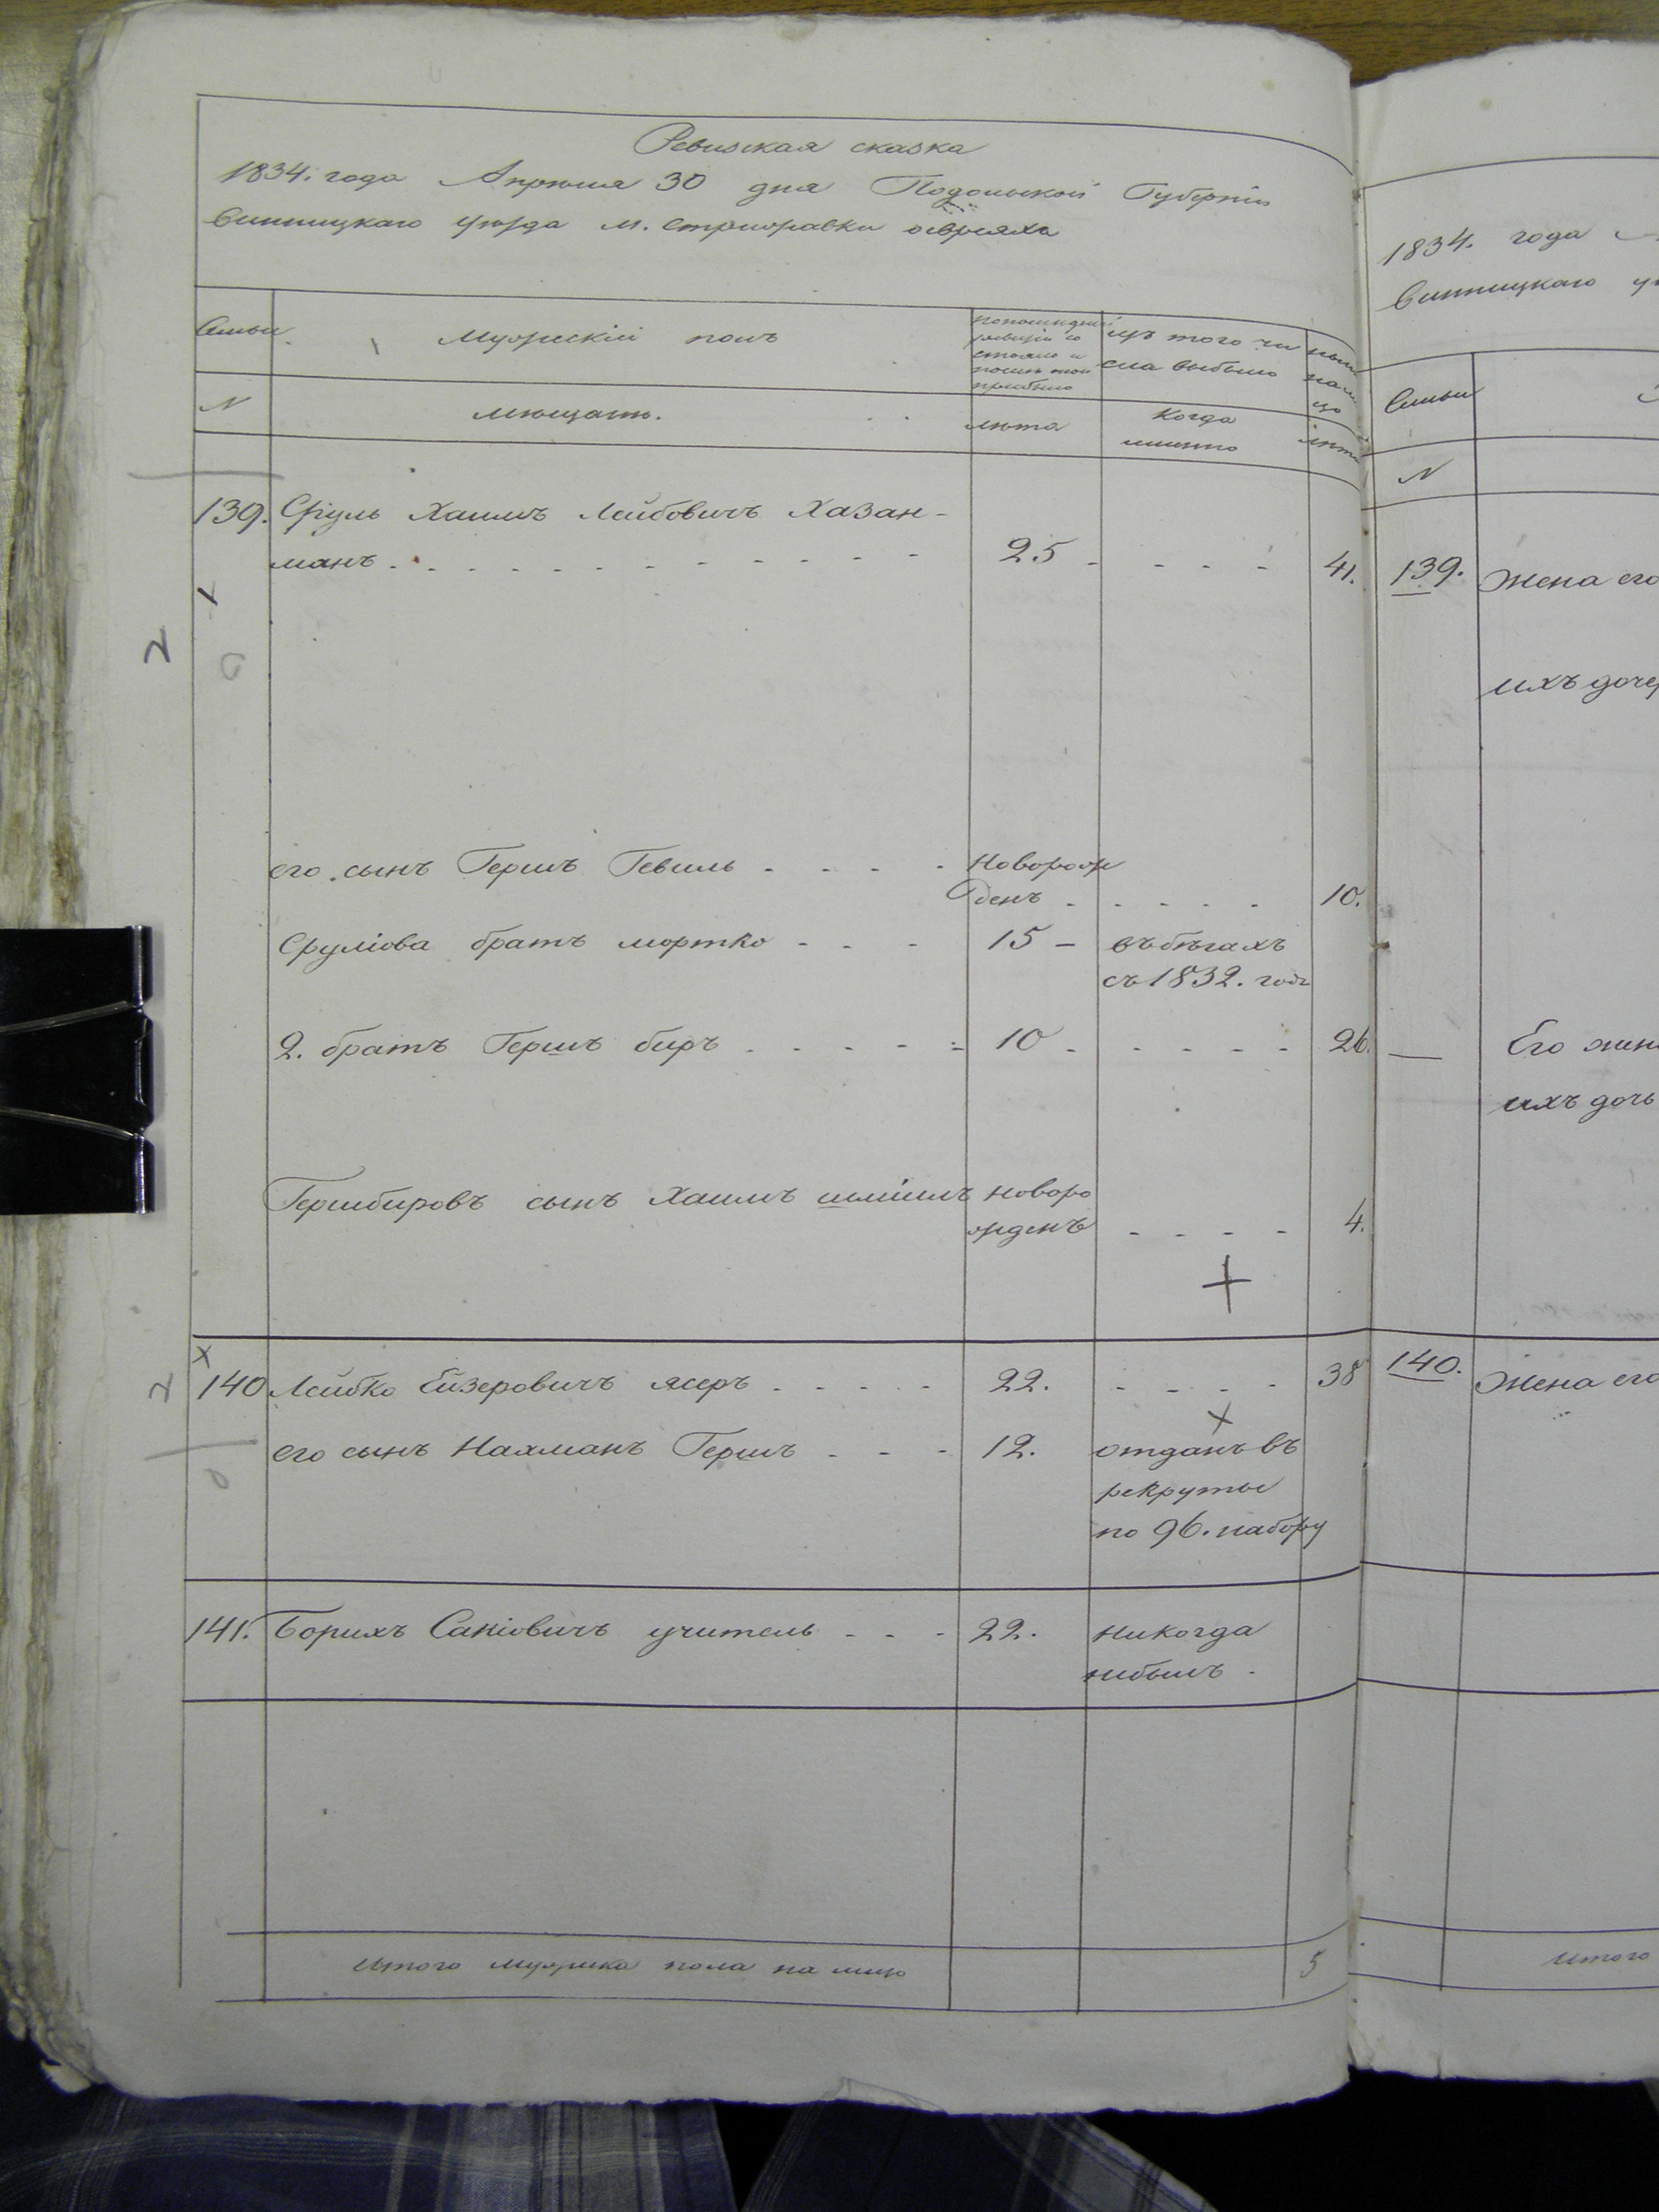 Ревизская сказка
1834. года Апреля 30 дня Подольской Губерніи
Винницкаго уезда м. Стрижавки о евреяхъ
Семьи
Мужескій полъ
по последней
ревизіи со
стояло и
после того
прибыло
изъ того чи
сла выбыло
ныне
на ли
цо
N
мещане.
лета
Когда
именно
лета
139. Сруль Хаимъ Лейбовичъ Хазан-
манъ - - - - - 25 - - - - 41.
его сынъ Гершъ Гевиль - - - - новорож
денъ - - - - - 10.
Срулiова братъ мортко - - - 15 - въ бегахъ
съ 1832. года
2. братъ Гершъ беръ - - - - - 10 - - - - - 26.
Гершберовъ сынъ Хаимъ шлiимъ новоро
жденъ - - - - 4.
140 Лейбко Ейзеровичъ ясеръ - - - - - 22. - - - - 38
его сынъ Нахманъ Гершъ - - - 12. отданъ въ
рекруты
по 96. набору
141. Борихъ Санiовичъ учитель - - - 22. никогда
небылъ -
Итого мужеска пола на лицо 5
1834. года
Винницкаго у
Семьи
N
139. Жена его
ихъ дочер
Его жен
ихъ дочь
140. Жена его
Итого